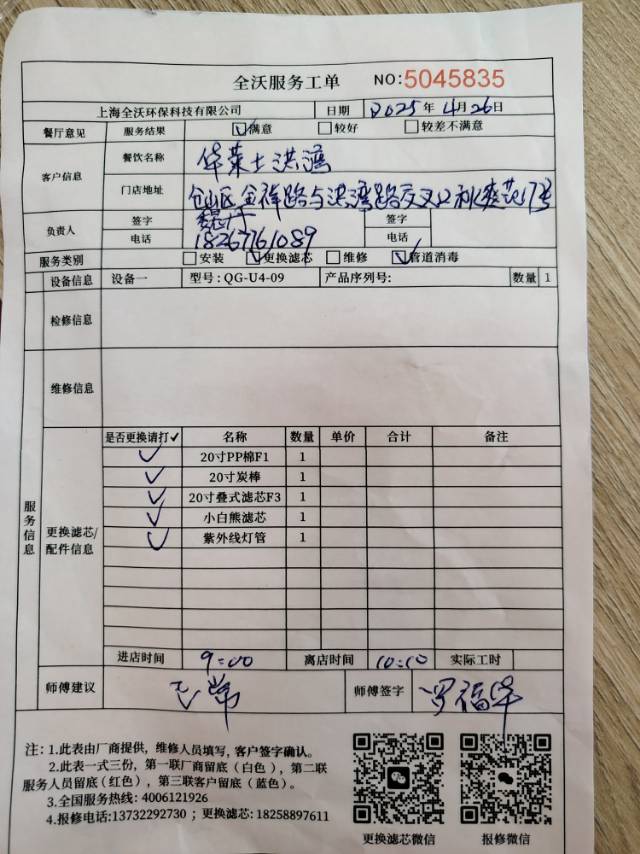 全沃服务工单 NO:5045835
上海全沃环保科技有限公司 日期 2025年4月26日
餐厅意见 服务结果 ☑满意 □较好 □较差不满意
客户信息 餐饮名称 华莱士洪湾
门店地址 仓山区金祥路与洪湾路交叉口 17号
负责人 签字 签字
电话 18267761089 电话
服务类别 □安装 ☑更换滤芯 □维修 ☑管道消毒
服务信息
设备信息 设备一 型号:QG-U4-09 产品序列号: 数量 1
检修信息
维修信息
更换滤芯/配件信息
是否更换请打✓ 名称 数量 单价 合计 备注
✓ 20寸PP棉F1 1
✓ 20寸炭棒 1
✓ 20寸叠式滤芯F3 1
✓ 小白熊滤芯 1
✓ 紫外线灯管 1
进店时间 9:00 离店时间 10:10 实际工时
师傅建议 正常 师傅签字 罗福华
注:1.此表由厂商提供,维修人员填写,客户签字确认。
2.此表一式三份,第一联厂商留底(白色),第二联
服务人员留底(红色),第三联客户留底(蓝色)。
3.全国服务热线:4006121926
4.报修电话:13732292730;更换滤芯:18258897611
更换滤芯微信 报修微信